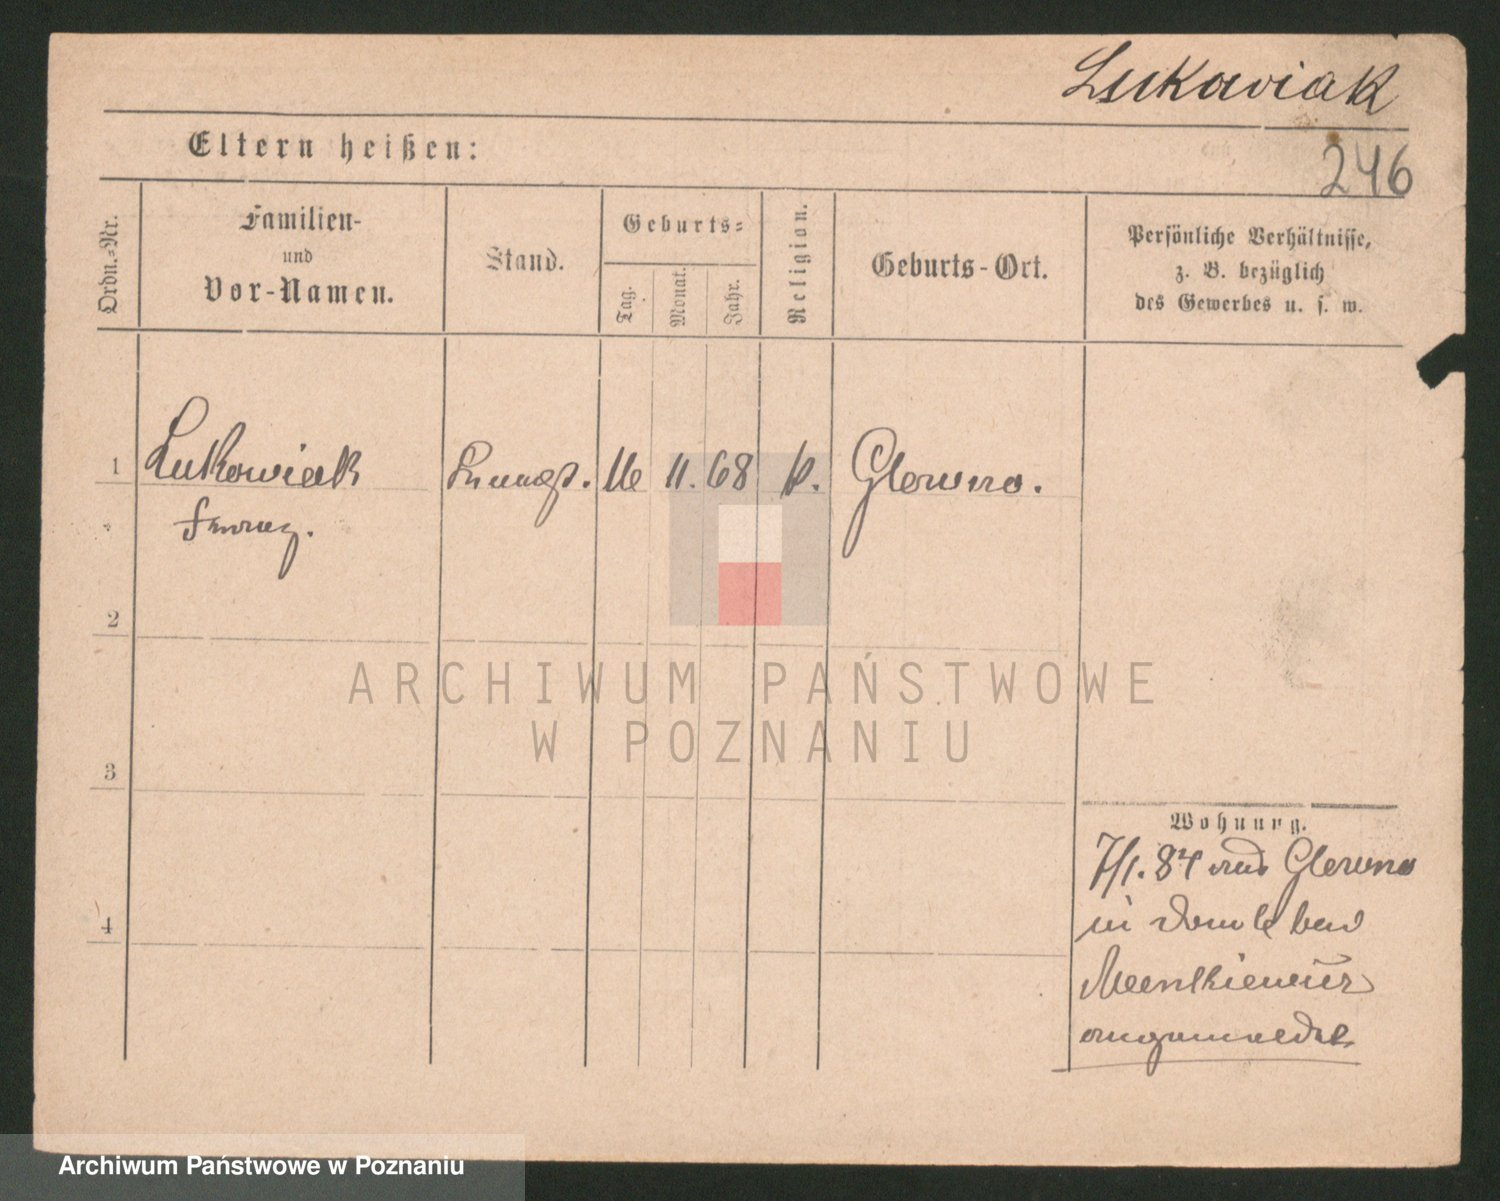 Lukowiak
246
Eltern heißen:
Ordn.-Nr.
Familien-
und
Vor-Namen.
Stand.
Geburts-
Tag.
Monat.
Jahr.
Religion.
Geburts-Ort.
Persönliche Verhältnisse,
z. B. bezüglich
des Gewerbes u. s. w.
1 Lukowiak 11. 68 k. Glowno.
Franz.
2
3
4
Wohnung.
7/1. 84 aus Glowno
in
angemeldet
ARCHIWUM PAŃSTWOWE
W POZNANIU
Archiwum Państwowe w Poznaniu